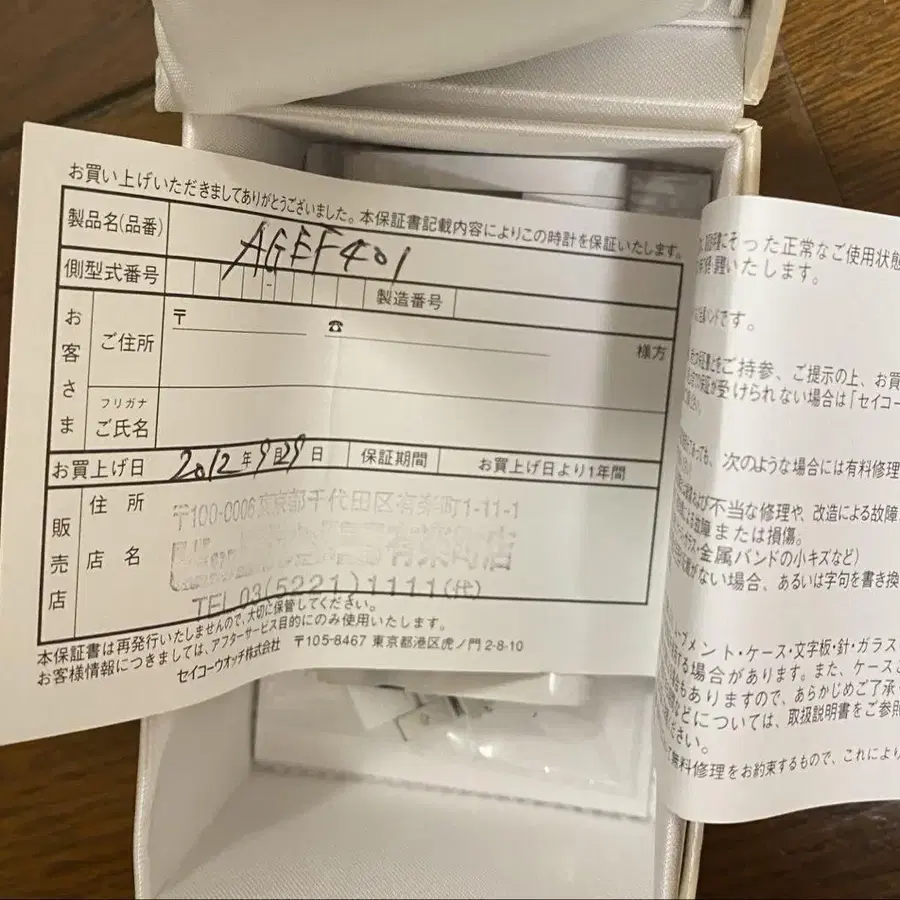 お買い上げいただきましてありがとうございました。本保証書記載内容によりこの時計を保証いたします。
製品名(品番) AGEF401
側型式番号 - 製造番号
お客さま
ご住所 〒 ☎ 様方
フリガナ
ご氏名
お買上げ日 2012年9月29日 保証期間 お買上げ日より1年間
販売店
住所 〒100-0006東京都千代田区有楽町1-11-1
店名 有楽町店
TEL 03(5221)1111(代)
本保証書は再発行いたしませんので、大切に保管してください。
お客様情報につきましては、アフターサービス目的にのみ使用いたします。
セイコーウオッチ株式会社 〒105-8467 東京都港区虎ノ門2-8-10
にそった正常なご使用状態
いたします。
です。
をご持参、ご提示の上、お買
受けられない場合は「セイコー
次のような場合には有料修理
不当な修理や、改造による故障
故障または損傷。
金属バンドの小キズなど)
がない場合、あるいは字句を書き換
ブメント・ケース・文字板・針・ガラス
する場合があります。また、ケース
もありますので、あらかじめご了承
などについては、取扱説明書をご参照
ださい。
無料修理をお約束するもので、これにより